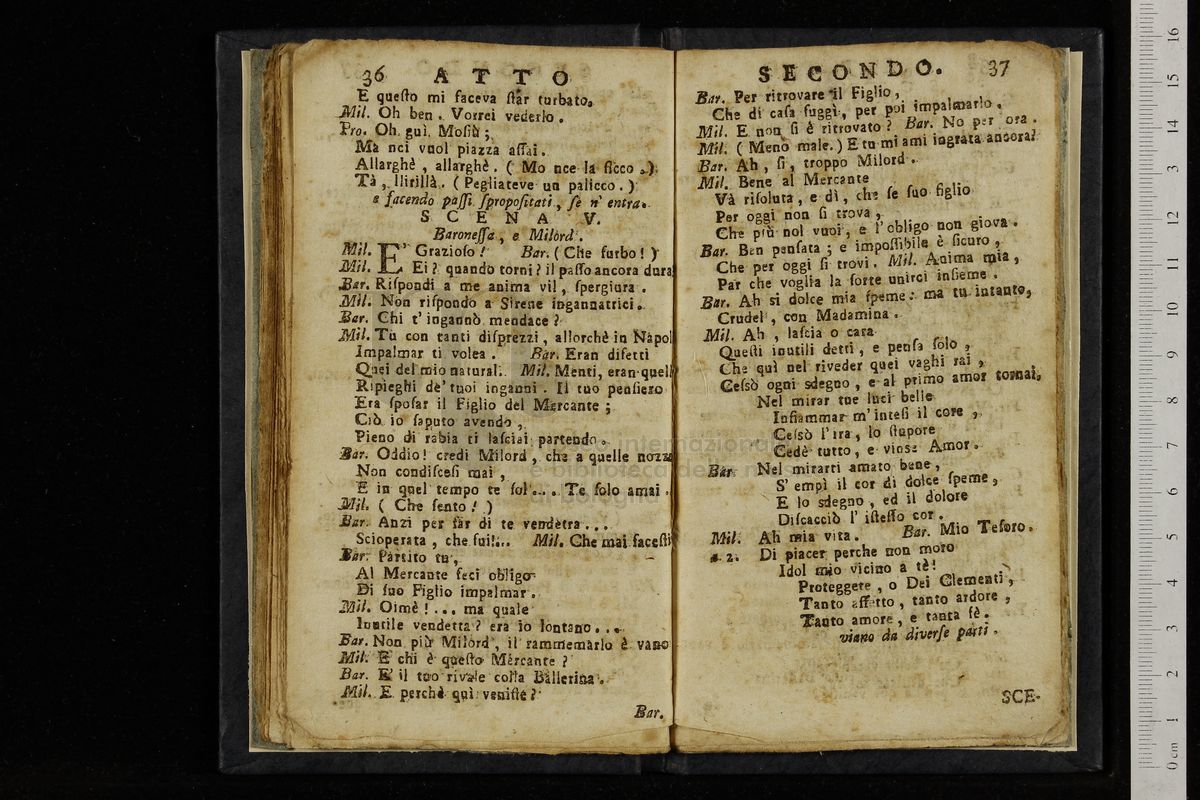 36 ATTO
E queſto mi faceva ſtar turbato.
Mil. Oh ben. Vorrei vederlo.
Pro. Oh guì, Moſiù;
Mà nci vuol piazza aſſai.
Allarghè, allarghè. (Mo nce la ficco.)
Tà, llirillà. (Pegliateve un palicco.)
e facendo paſſi ſpropoſitati, ſe n' entra.
SCENA V.
Baroneſſa, e Milord.
Mil. E' Grazioſo! Bar. (Che furbo!)
Mil. Ei? quando torni? il paſſo ancora dura
Bar. Riſpondi a me anima vil, ſpergiura.
Mil. Non riſpondo a Sirene ingannatrici.
Bar. Chi t' ingannò mendace?
Mil. Tu con tanti diſprezzi, allorchè in Napol
Impalmar ti volea. Bar. Eran difetti
Quei del mio natural. Mil. Menti, eran quell
Ripieghi de' tuoi inganni. Il tuo penſiero
Era ſpoſar il Figlio del Mercante;
Ciò io ſaputo avendo,
Pieno di rabia ti laſciai partendo.
Bar. Oddio! credi Milord, che a quelle nozze
Non condiſceſi mai,
E in quel tempo te ſol.... Te ſolo amai.
Mil. (Che ſento!)
Bar. Anzi per far di te vendetta...
Scioperata, che fui!... Mil. Che mai faceſti
Bar. Partito tu,
Al Mercante feci obligo
Di ſuo Figlio impalmar.
Mil. Oimè!... ma quale
Inutile vendetta? era io lontano...
Bar. Non più Milord, il rammemarlo è vano
Mil. E chi è queſto Mercante?
Bar. E' il tuo rivale colla Ballerina.
Mil. E perchè quì veniſte?
Bar.
SECONDO. 37
Bar. Per ritrovare il Figlio,
Che di caſa fuggì, per poi impalmarlo.
Mil. E non ſi è ritrovato? Bar. No per ora.
Mil. (Meno male.) E tu mi ami ingrata ancora?
Bar. Ah, ſì, troppo Milord.
Mil. Bene al Mercante
Và riſoluta, e dì, che ſe ſuo figlio
Per oggi non ſi trova,
Che più nol vuoi, e l'obligo non giova.
Bar. Ben penſata; e impoſſibile è ſicuro,
Che per oggi ſi trovi. Mil. Anima mia,
Par che voglia la ſorte unirci inſieme.
Bar. Ah si dolce mia ſpeme: ma tu intanto,
Crudel, con Madamina.
Mil. Ah, laſcia o cara
Queſti inutili detti, e penſa ſolo,
Che quì nel riveder quei vaghi rai,
Ceſsò ogni sdegno, e al primo amor tornai.
Nel mirar tue luci belle
Infiammar m'inteſi il core,
Ceſsò l'ira, lo ſtupore
Cedè tutto, e vinse Amor.
Bar Nel mirarti amato bene,
S' empì il cor di dolce ſpeme,
E lo sdegno, ed il dolore
Diſcacciò l' iſteſſo cor.
Mil. Ah mia vita. Bar. Mio Teſoro.
a 2. Di piacer perche non moro
Idol mio vicino a tè!
Proteggete, o Dei Clementi,
Tanto affetto, tanto ardore,
Tanto amore, e tanta fè.
viano da diverſe parti.
SCE-